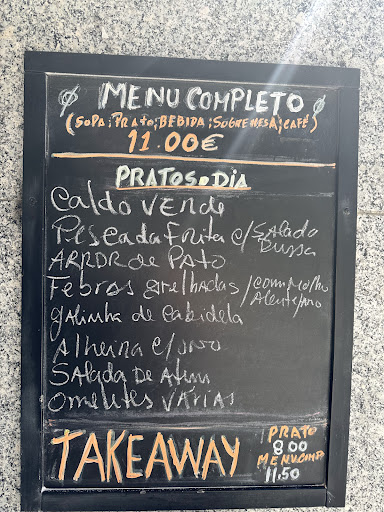 MENU COMPLETO
(SOPA; PRATO; BEBIDA; SOBREMESA; CAFÉ)
11.00€
PRATOS DIA
Caldo VERDE
Pescada Frita c/ SALADA
Russa
ARROR de PATO
Febras grelhadas / com molho
Alentejano
galinha de Cabidela
Alheira c/ ovo
SALADA DE Atum
Omeletes VÁRIAS
TAKEAWAY
PRATO
8.00
MENU COMP
11,50